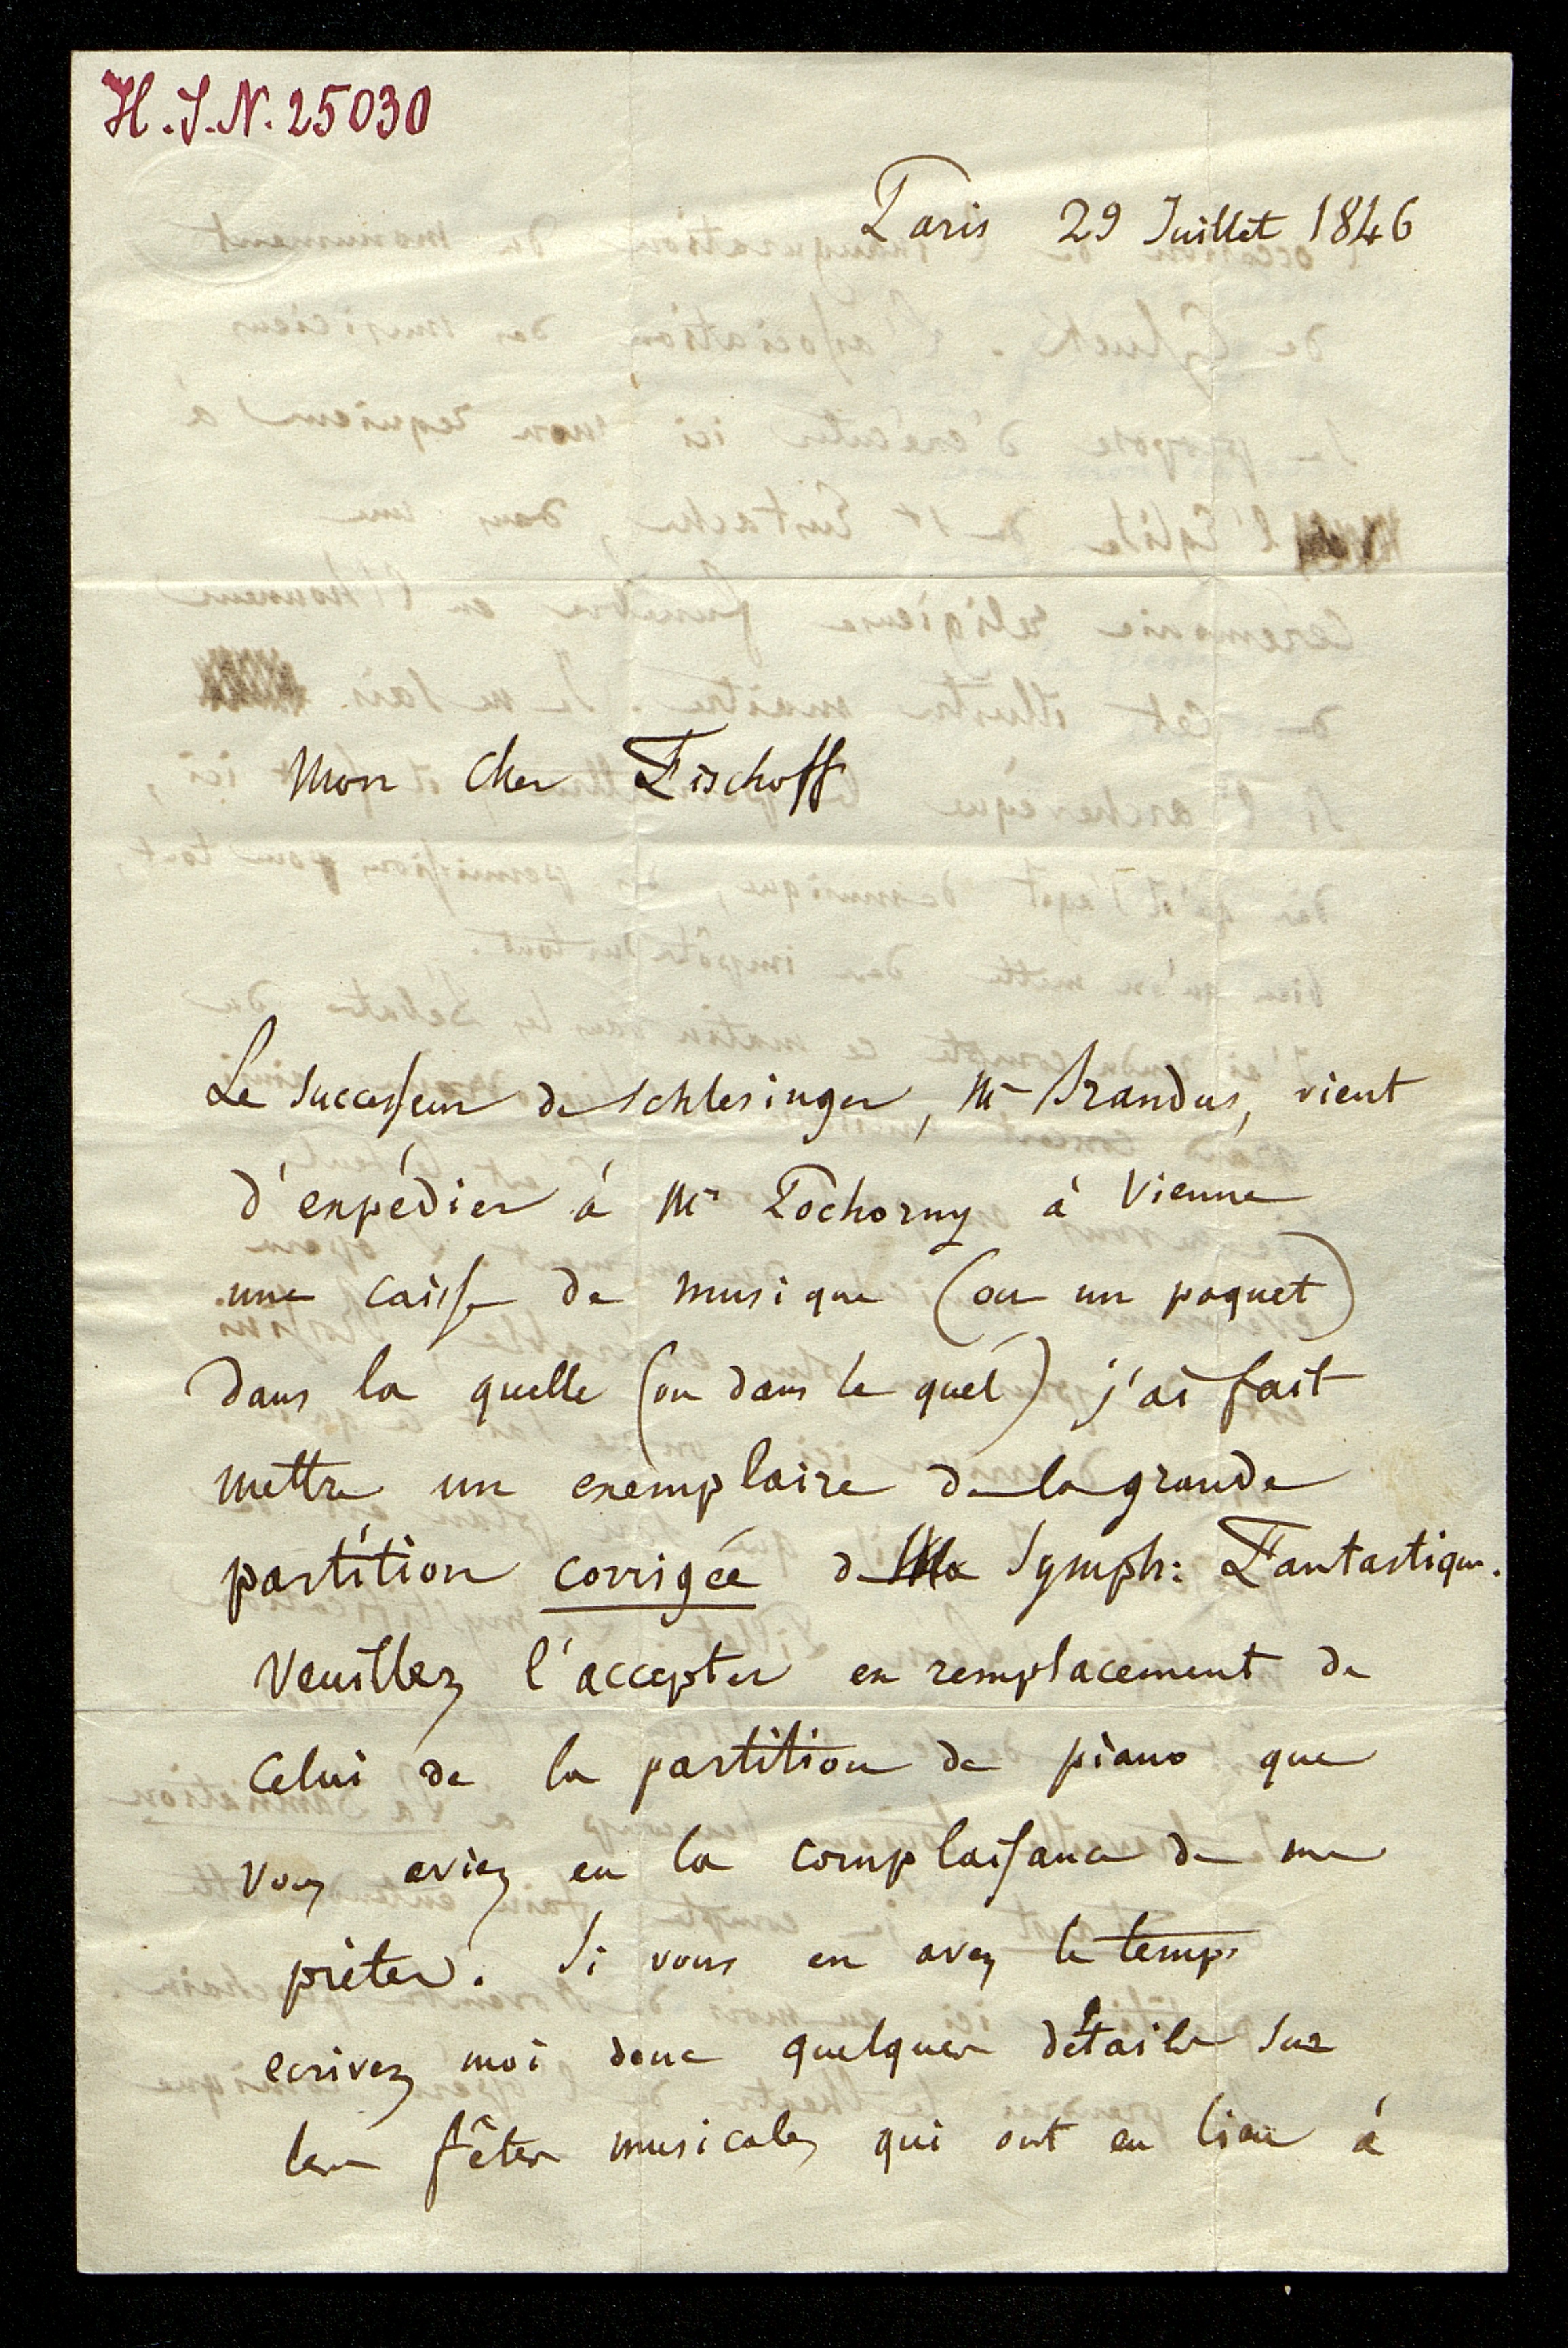 H.I.N. 25030
Paris 29 Juillet 1846
Mon cher Fischoff
Le successeur de Schlesinger, Mr Brandus, vient
d'expédier à Mr Pochorny à Vienne
une caisse de musique (ou un paquet)
dans la quelle (ou dans le quel) j'ai fait
mettre un exemplaire de la grande
partition corrigée de la Symph: Fantastique.
Veuillez l'accepter en remplacement de
celui de la partition de piano que
vous aviez eu la complaisance de me
prêter. Si vous en avez le temps
ecrivez moi donc quelques détails sur
les fêtes musicales qui ont eu lieu à